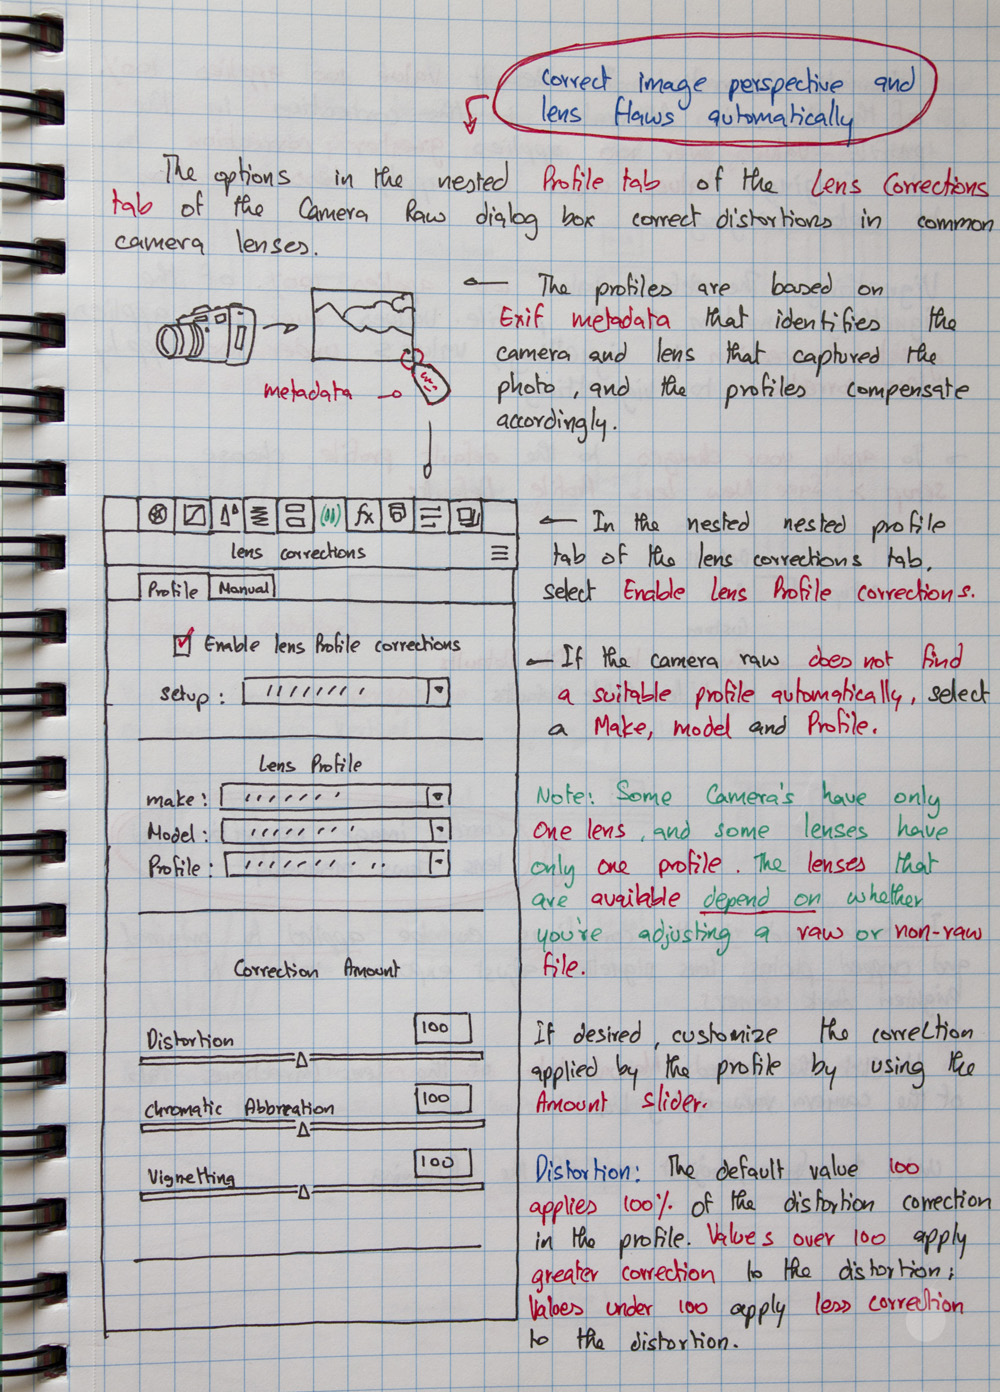 correct image perspective and
lens flaws automatically
The options in the nested Profile tab of the Lens Corrections
tab of the Camera Raw dialog box correct distortions in common
camera lenses.
The profiles are based on
Exif metadata that identifies the
camera and lens that captured the
photo, and the profiles compensate
accordingly.
metadata
lens corrections
Profile Manual
Enable lens Profile corrections
setup:
Lens Profile
make:
Model:
Profile:
Correction Amount
Distortion 100
chromatic Abbreation 100
Vignetting 100
fx
In the nested nested profile
tab of the lens corrections tab,
select Enable Lens Profile corrections.
If the camera raw does not find
a suitable profile automatically, select
a Make, model and Profile.
Note: Some Camera's have only
one lens, and some lenses have
only one profile. The lenses that
are available depend on whether
you're adjusting a raw or non-raw
file.
If desired, customize the correction
applied by the profile by using the
Amount slider.
Distortion: The default value 100
applies 100% of the distortion correction
in the profile. Values over 100 apply
greater correction to the distortion;
Values under 100 apply less correction
to the distortion.